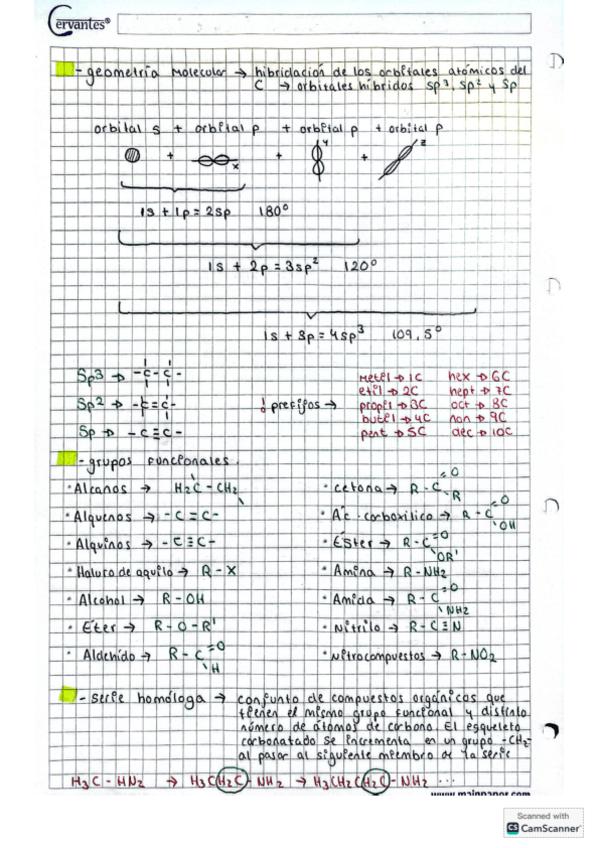 Cervantes®
- geometría molecular → hibridación de los orbitales atómicos del
C → orbitales híbridos sp³, sp² y sp
orbital s + orbital p + orbital p + orbital p
+ x + y + z
1s + 1p = 2sp 180°
1s + 2p = 3sp² 120°
1s + 3p = 4sp³ 109,5°
Sp3 → -C-C-
Sp2 → -C=C-
Sp → -C≡C-
! prefijos →
metil → 1C
etil → 2C
propil → 3C
butil → 4C
pent → 5C
hex → 6C
hept → 7C
oct → 8C
non → 9C
dec → 10C
- grupos funcionales.
· Alcanos → H2C - CH2
· Alquenos → -C=C-
· Alquinos → -C≡C-
· Haluro de aquilo → R-X
· Alcohol → R-OH
· Eter → R-O-R'
· Aldehído → R-C=O H
· cetona → R-C=O R
· Ác. carboxílico → R-C=O OH
· Éster → R-C=O OR'
· Amina → R-NH2
· Amida → R-C=O NH2
· Nitrilo → R-C≡N
· Nitrocompuestos → R-NO2
- serie homóloga → conjunto de compuestos orgánicos que
tienen el mismo grupo funcional y distinto
número de átomos de carbono. El esqueleto
carbonatado se incrementa en un grupo -CH2-
al pasar al siguiente miembro de la serie
H3C - HN2 → H3CH2C - NH2 → H3CH2CH2C - NH2 ...
Scanned with
CS CamScanner